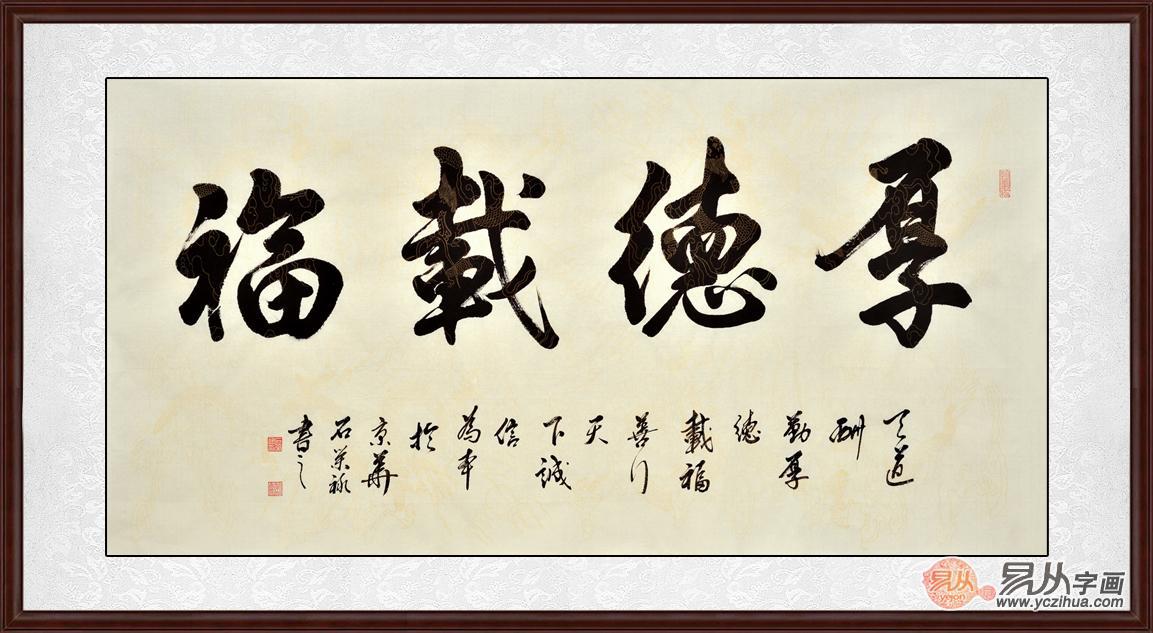 厚德載福
天道
酬
勤厚
德
載福
善行
天
下誠
信
為本
於
京華
石榮祿
書之
易从
yejon
易从字画
www.yczihua.com